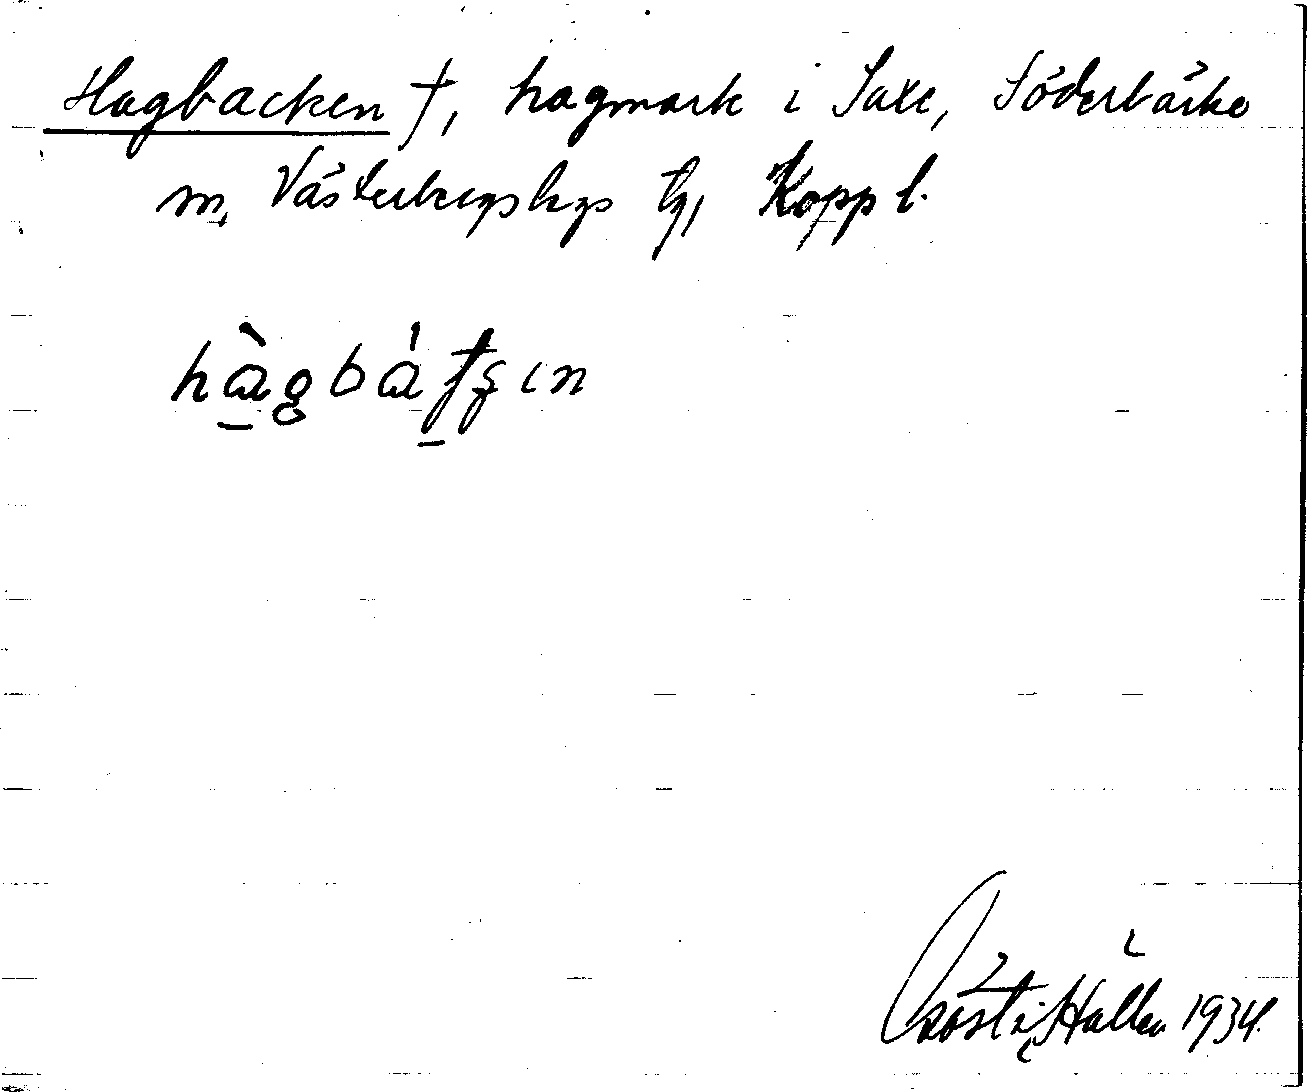 Hagbacken †, hagmark i Saxe, Söderbärke
sn, Västerbergslags tg, Kopp l.
hàgbátʂɩn
Gösta Hallén 1934.